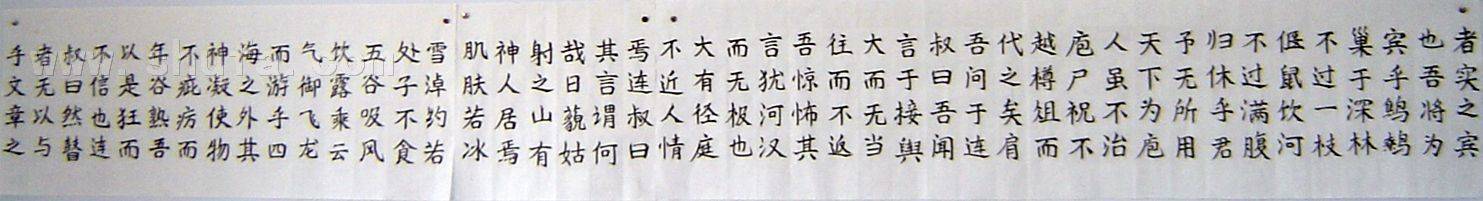 者实之宾
也吾将为
宾乎鹪鹩
巢于深林
不过一枝
偃鼠饮河
不过满腹
归休乎君
予无所用
天下为庖
人虽不治
庖尸祝不
越樽俎而
代之矣肩
吾问于连
叔曰吾闻
言于接舆
大而无当
往而不返
吾惊怖其
言犹河汉
而无极也
大有径庭
不近人情
焉连叔曰
其言谓何
哉曰藐姑
射之山有
神人居焉
肌肤若冰
雪淖约若
处子不食
五谷吸风
饮露乘云
气御飞龙
而游乎四
海之外其
神凝使物
不疵疠而
年谷熟吾
以是狂而
不信也连
叔曰然瞽
者无以与
乎文章之